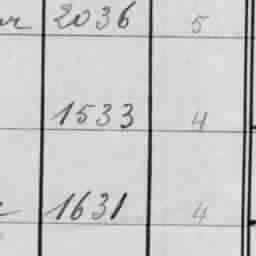 2036 5
1533 4
1631 4